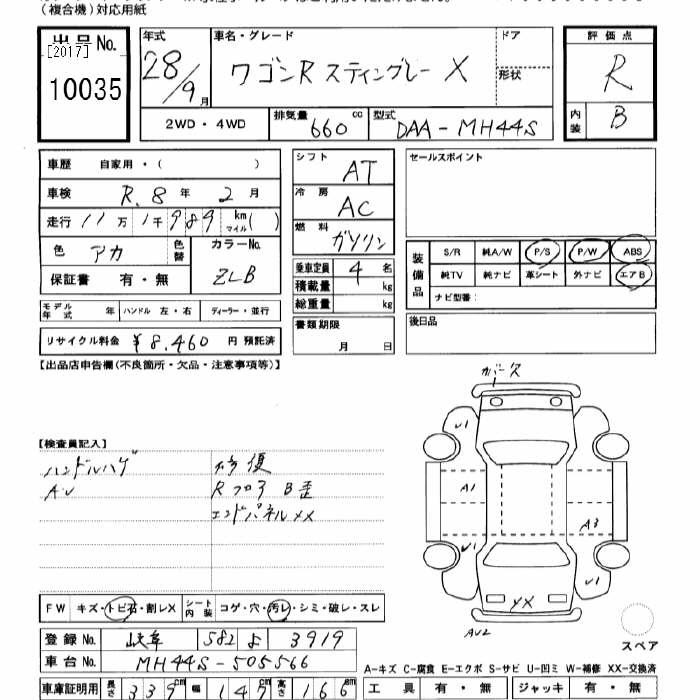 (複合機)対応用紙
出品 No.
[2017]
10035
年式
28/9月
車名・グレード
ワゴンR スティングレー X
ドア
形状
2WD・4WD
排気量 660 cc
型式 DAA-MH44S
評価点
R
内装 B
車歴 自家用・( )
車検 R.8 年 2 月
走行 11万1千989 km マイル( )
色 アカ 色替
カラーNo. ZLB
保証書 有・無
モデル年式 年 ハンドル 左・右 ディーラー・並行
リサイクル料金 ¥8,460 円 預託済
シフト AT
冷房 AC
燃料 ガソリン
乗車定員 4 名
積載量 kg
総重量 kg
書類期限
月 日
セールスポイント
装備品
S/R 純A/W P/S P/W ABS
純TV 純ナビ 革シート 外ナビ エアB
ナビ型番:
後日品
【出品店申告欄(不良箇所・欠品・注意事項等)】
【検査員記入】
ハンドルハゲ
AU
修復
Rフロア B歪
エンドパネルXX
カバー欠
U1
A1
A3
U1
U1
XX
AU2
スペア
FW キズ・トビ石・割レX シート内装 コゲ・穴・汚レ・シミ・破レ・スレ
登録 No. 岐阜 582 よ 3919
車台 No. MH44S-505566
車庫証明用 長さ 339 cm 幅 147 cm 高さ 166 cm
A-キズ C-腐食 E-エクボ S-サビ U-凹ミ W-補修 XX-交換済
工具 有・無 ジャッキ 有・無